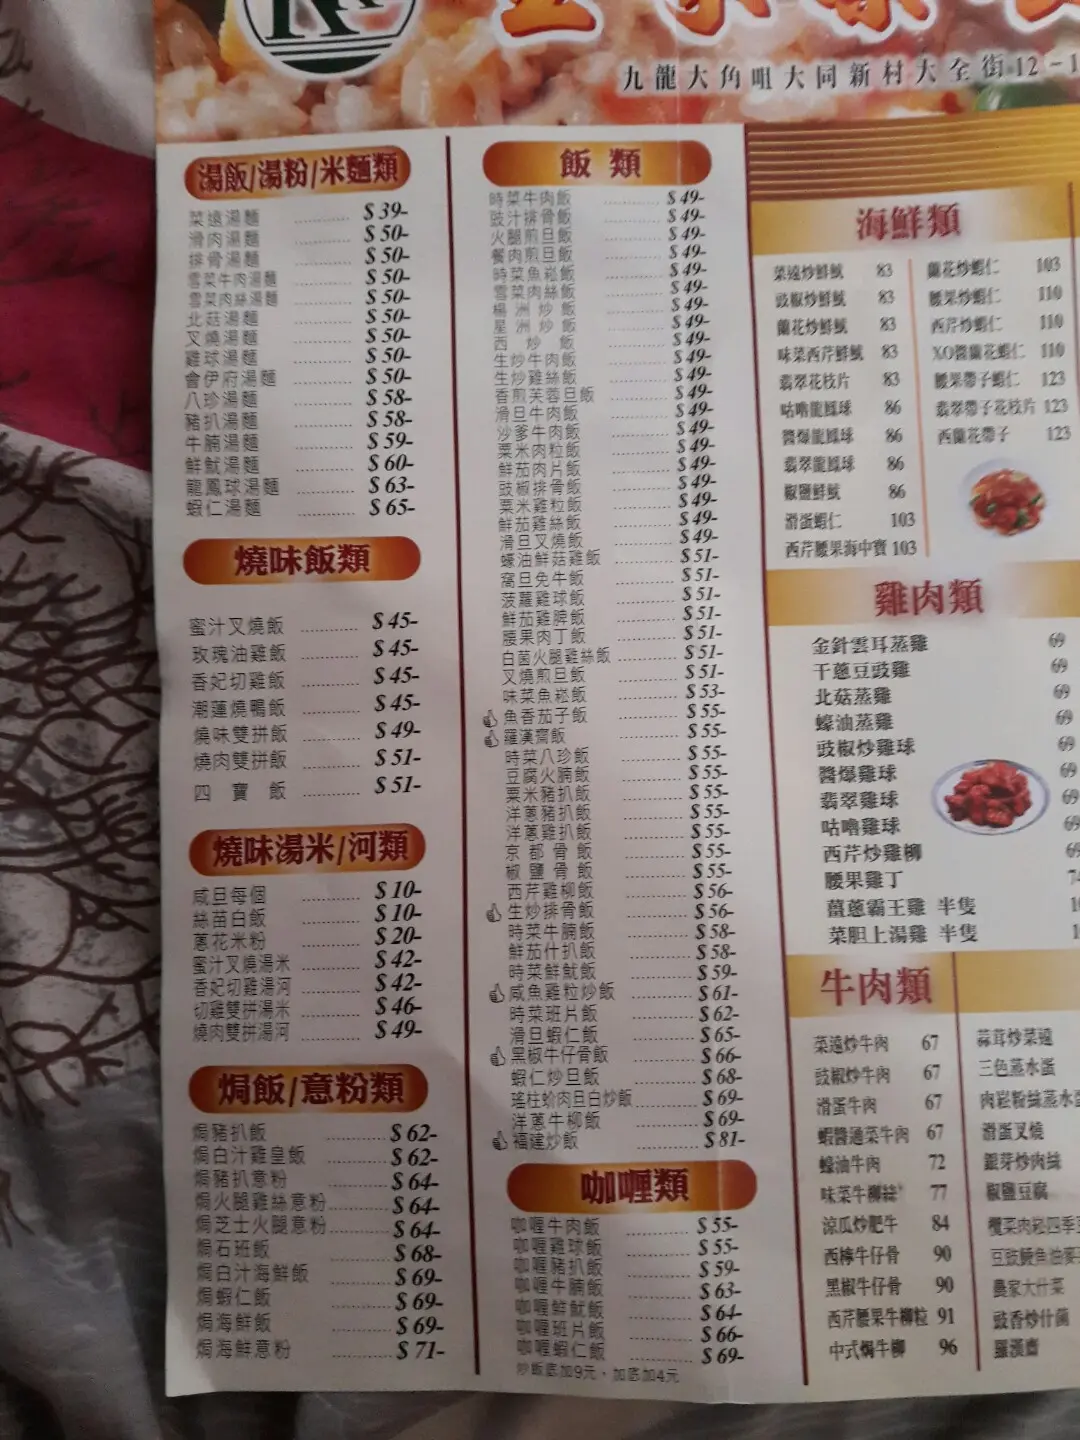 九龍大角咀大同新村大全街12-1
湯飯/湯粉/米麵類
菜遠湯麵 $39-
滑肉湯麵 $50-
排骨湯麵 $50-
雪菜牛肉湯麵 $50-
雪菜肉絲湯麵 $50-
北菇湯麵 $50-
叉燒湯麵 $50-
雞球湯麵 $50-
會伊府湯麵 $50-
八珍湯麵 $58-
豬扒湯麵 $58-
牛腩湯麵 $59-
鮮魷湯麵 $60-
龍鳳球湯麵 $63-
蝦仁湯麵 $65-
燒味飯類
蜜汁叉燒飯 $45-
玫瑰油雞飯 $45-
香妃切雞飯 $45-
潮蓮燒鴨飯 $45-
燒味雙拼飯 $49-
燒肉雙拼飯 $51-
四寶飯 $51-
燒味湯米/河類
咸旦每個 $10-
絲苗白飯 $10-
蔥花米粉 $20-
蜜汁叉燒湯米 $42-
香妃切雞湯河 $42-
切雞雙拼湯米 $46-
燒肉雙拼湯河 $49-
焗飯/意粉類
焗豬扒飯 $62-
焗白汁雞皇飯 $62-
焗豬扒意粉 $64-
焗火腿雞絲意粉 $64-
焗芝士火腿意粉 $64-
焗石班飯 $68-
焗白汁海鮮飯 $69-
焗蝦仁飯 $69-
焗海鮮飯 $69-
焗海鮮意粉 $71-
飯類
時菜牛肉飯 $49-
豉汁排骨飯 $49-
火腿煎旦飯 $49-
餐肉煎旦飯 $49-
時菜魚崧飯 $49-
雪菜肉絲飯 $49-
楊洲炒飯 $49-
星洲炒飯 $49-
西炒飯 $49-
生炒牛肉飯 $49-
生炒雞絲飯 $49-
香煎芙蓉旦飯 $49-
滑旦牛肉飯 $49-
沙爹牛肉飯 $49-
粟米肉粒飯 $49-
鮮茄肉片飯 $49-
豉椒排骨飯 $49-
粟米雞粒飯 $49-
鮮茄雞絲飯 $49-
滑旦叉燒飯 $49-
蠔油鮮菇雞飯 $51-
窩旦免牛飯 $51-
菠蘿雞球飯 $51-
鮮茄雞脾飯 $51-
腰果肉丁飯 $51-
白菌火腿雞絲飯 $51-
叉燒煎旦飯 $51-
味菜魚崧飯 $53-
魚香茄子飯 $55-
羅漢齋飯 $55-
時菜八珍飯 $55-
豆腐火腩飯 $55-
粟米豬扒飯 $55-
洋蔥豬扒飯 $55-
洋蔥雞扒飯 $55-
京都骨飯 $55-
椒鹽骨飯 $55-
西芹雞柳飯 $56-
生炒排骨飯 $56-
時菜牛腩飯 $58-
鮮茄什扒飯 $58-
時菜鮮魷飯 $59-
咸魚雞粒炒飯 $61-
時菜班片飯 $62-
滑旦蝦仁飯 $65-
黑椒牛仔骨飯 $66-
蝦仁炒旦飯 $68-
瑤柱蚧肉旦白炒飯 $69-
洋蔥牛柳飯 $69-
福建炒飯 $81-
咖喱類
咖喱牛肉飯 $55-
咖喱雞球飯 $55-
咖喱豬扒飯 $59-
咖喱牛腩飯 $63-
咖喱鮮魷飯 $64-
咖喱班片飯 $66-
咖喱蝦仁飯 $69-
炒飯底加9元，加底加4元
海鮮類
菜遠炒鮮魷 83
豉椒炒鮮魷 83
蘭花炒鮮魷 83
味菜西芹鮮魷 83
翡翠花枝片 83
咕嚕龍鳳球 86
醬爆龍鳳球 86
翡翠龍鳳球 86
椒鹽鮮魷 86
滑蛋蝦仁 103
西芹腰果海中寶 103
蘭花炒蝦仁 103
腰果炒蝦仁 110
西芹炒蝦仁 110
XO醬蘭花蝦仁 110
腰果帶子蝦仁 123
翡翠帶子花枝片 123
西蘭花帶子 123
雞肉類
金針雲耳蒸雞 69
干蔥豆豉雞 69
北菇蒸雞 69
蠔油蒸雞 69
豉椒炒雞球 69
醬爆雞球 69
翡翠雞球 69
咕嚕雞球 69
西芹炒雞柳 69
腰果雞丁 74
薑蔥霸王雞 半隻
菜胆上湯雞 半隻
牛肉類
菜遠炒牛肉 67
豉椒炒牛肉 67
滑蛋牛肉 67
蝦醬通菜牛肉 67
蠔油牛肉 72
味菜牛柳絲 77
涼瓜炒肥牛 84
西檸牛仔骨 90
黑椒牛仔骨 90
西芹腰果牛柳粒 91
中式焗牛柳 96
蒜茸炒菜遠
三色蒸水蛋
肉崧粉絲蒸水蛋
滑蛋叉燒
銀芽炒肉絲
椒鹽豆腐
欖菜肉崧四季豆
豆豉鯪魚油麥
農家大什菜
豉香炒什菌
羅漢齋